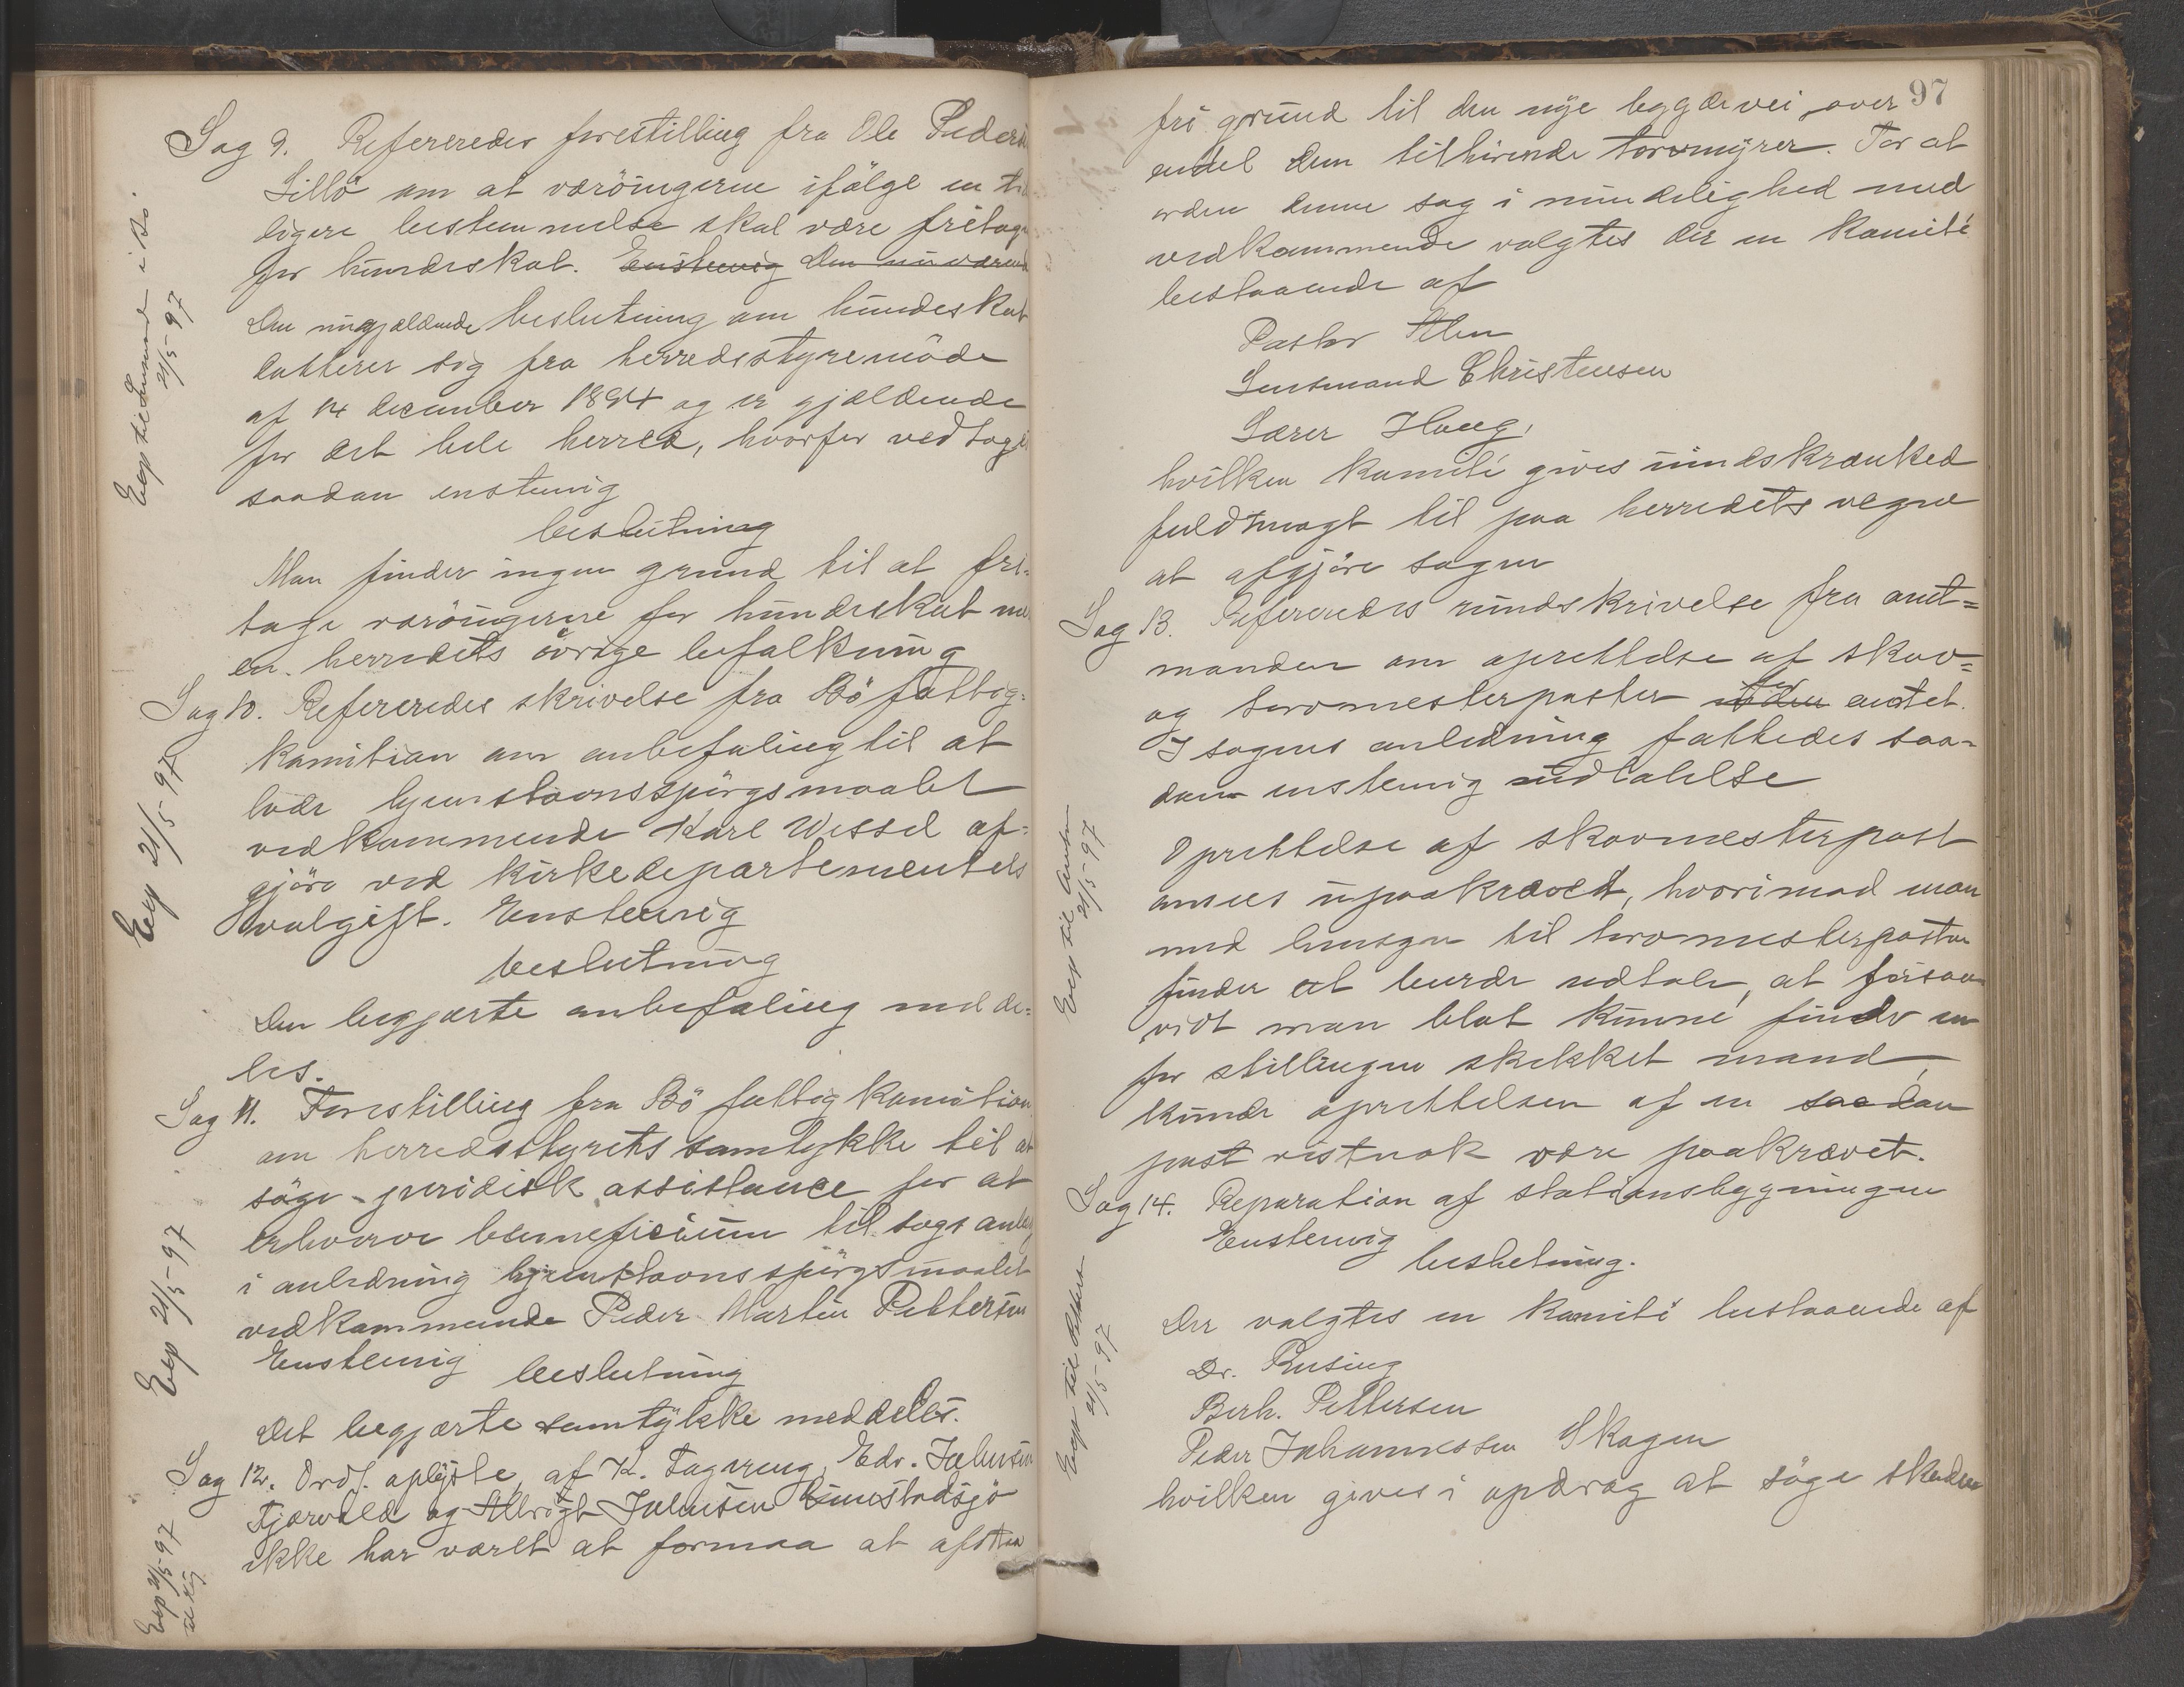 Sag 9. Refereredes forestilling fra Ole Peders
Lillö om at væröingerne ifölge en
ligere bestemmelse skal være fritag
for hundeskat. Enstemig Den nuværend
Den nugjældende beslutning om hundeskat
datterer sig fra herredsstyremöde
af 14 december 1894 og er gjældende
for det hele herred, hvorfor vedtog
saadan enstemig
beslutning
Man finder ingen grund til at fri-
tage væröingerne for hundeskat
en herredets övrige befalkning
Sag 10. Refereredes skrivelse fra Bö fattig-
kamitian om anbefaling til at
lade hjemstavnsspörgsmaalet
vedkammende Karl Wessel af-
gjöre ved Kirkedepartementets
valgift. Enstemig
beslutning
Den begjærte anbefaling med de-
les.
Sag 11. Forestilling fra Bö fattigkamitian
om herredsstyrets samtykke til at
söge juridisk assistance for at
erhverve benneficium til sags anlæg
i anledning hjemstavnsspörgsmaalet
vedkammende Peder Martin Pettersen
Enstemig beslutning
Det begjærte samtykke meddeles.
Sag 12. Ordf. oplyste, af K. Tagereng, Edv. Johnsen
Fjærvold og Albrigt Johnsen Einestadsjö
ikke har været at formaa at afstaa
Exp til Lensmand i Bö
21/5-97
Exp 21/5-97
Exp 21/5-97
Exp 21/5-97
97
fri grund til den nye bygdevei over
endel dem tilhörende torvmyrer. For at
orden denne sag i mindelighed med
vedkammende valgtes der en kamité
bestaaende af
Pastor
Lensmand Christensen
Lærer Haug,
hvilken kamité gives uindskrænked
fuldmagt til paa herredets vegne
at afgjöre sagen
Sag 13. Refereredes rundskrivelse fra amt=
manden om aprettelse af skov=
og torvmesterposter for amtet.
I sagens anledning fattedes saa-
dan enstemig udtalelse
Oprettelse af skovmesterpost
ansees upaakrævet, hvorimod man
med hensyn til torvmesterposten
finder at burde udtale, at forsaa-
vidt man blot kunne finde en
for stillingen skikket mand,
kunde aprettelsen af en saadan
post vistnok være paakrævet.
Sag 14. Reparation af stationsbygningen
Enstemig
beslutning.
Der valgtes en kamité bestaaende af
Dr. Rusing
Berh. Pettersen
Peder Johannessen Skagen
hvilken gives i opdrag at söge skaden
Exp til Amtm
21/5-97
Exp til
21/5-97